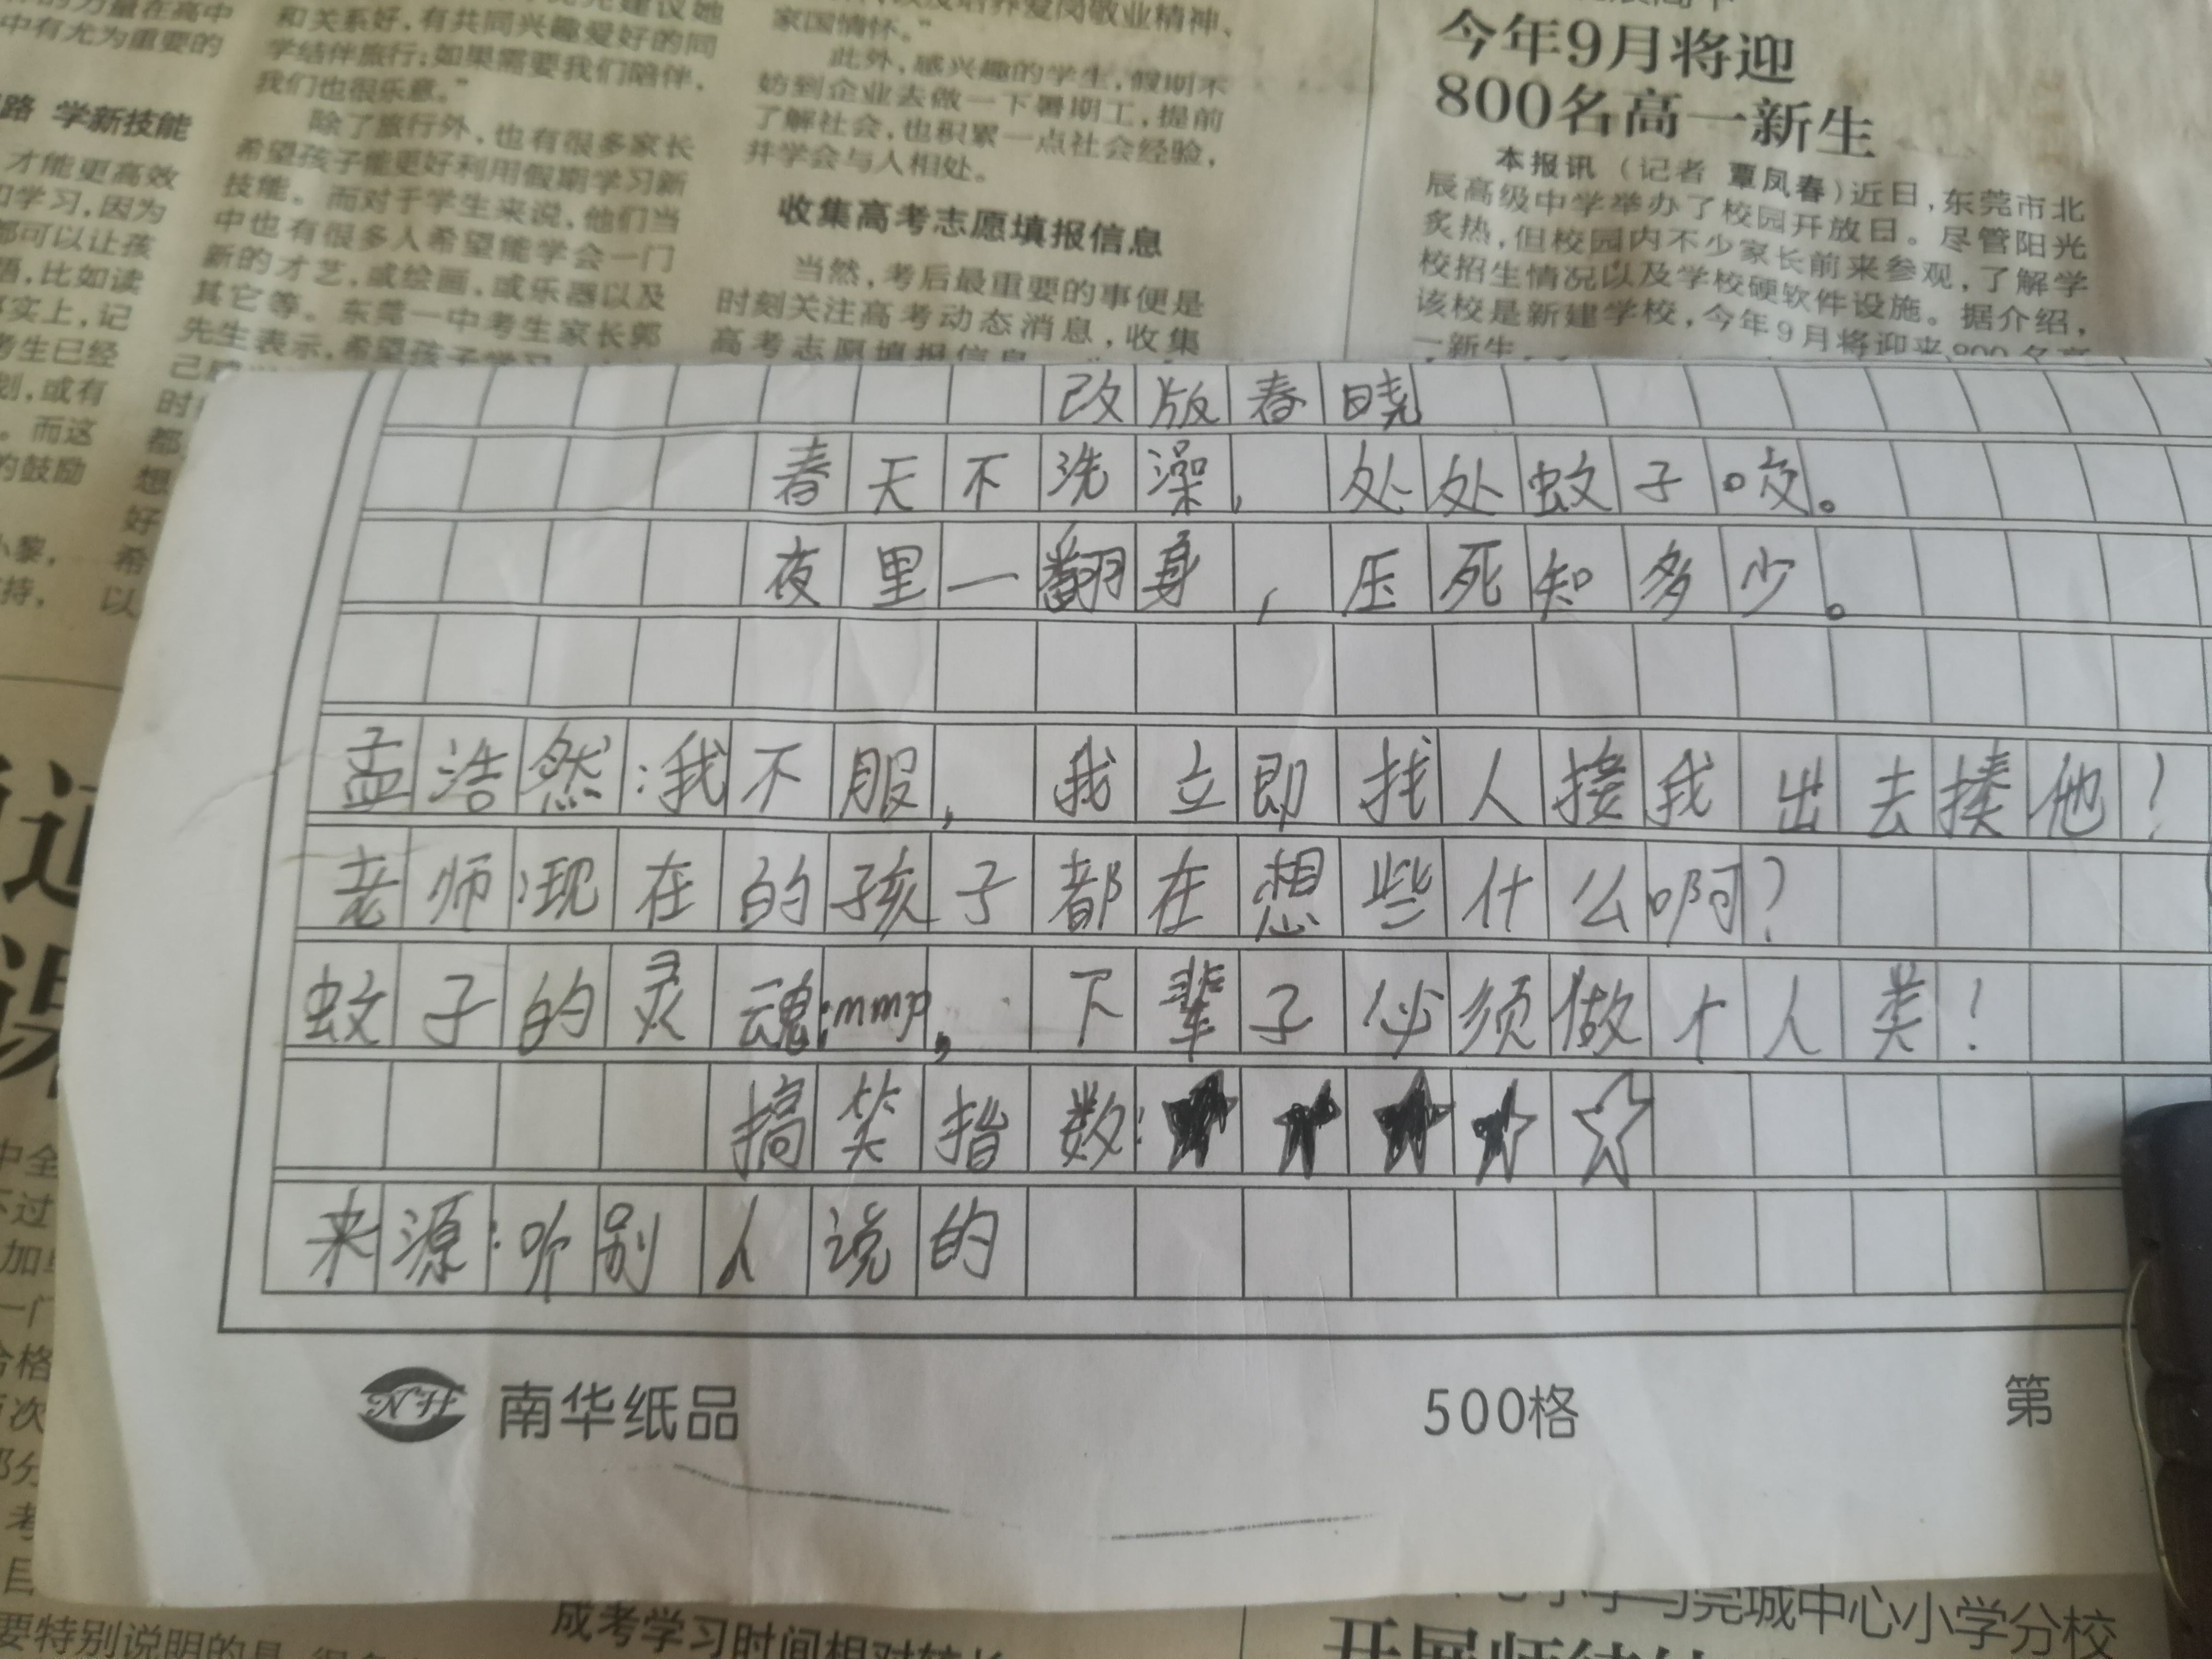 的力量在高中
中有尤为重要的
路 学新技能
才能更高效
和学习,因为
都可以让孩
比如读
实上,记
考生已经
划,或有
。而这
的鼓励
和关系好,有共同兴趣爱好的同
学结伴旅行;如果需要我们陪伴,
我们也很乐意。”
除了旅行外,也有很多家长
希望孩子能更好利用假期学习新
技能。而对于学生来说,他们当
中也有很多人希望能学会一门
新的才艺,或绘画,或乐器以及
其它等。东莞一中考生家长郭
先生表示,希望孩子学习
家国情怀。”
此外,感兴趣的学生,假期不
妨到企业去做一下暑期工,提前
了解社会,也积累一点社会经验,
并学会与人相处。
收集高考志愿填报信息
当然,考后最重要的事便是
时刻关注高考动态消息,收集
高考志愿填报信息
今年9月将迎
800名高一新生
本报讯(记者 覃凤春)近日,东莞市北
辰高级中学举办了校园开放日。尽管阳光
炙热,但校园内不少家长前来参观,了解学
校招生情况以及学校硬软件设施。据介绍,
该校是新建学校,今年9月将迎来800名高
一新生
改版春晓
春天不洗澡,处处蚊子咬。
夜里一翻身,压死知多少。
孟浩然:我不服,我立即找人接我出去揍他!
老师:现在的孩子都在想些什么啊?
蚊子的灵魂:mmp,下辈子必须做个人类!
搞笑指数:★★★★☆
来源:听别人说的
NH 南华纸品 500格 第
成考学习时间相对较长
要特别说明的是
莞城中心小学分校